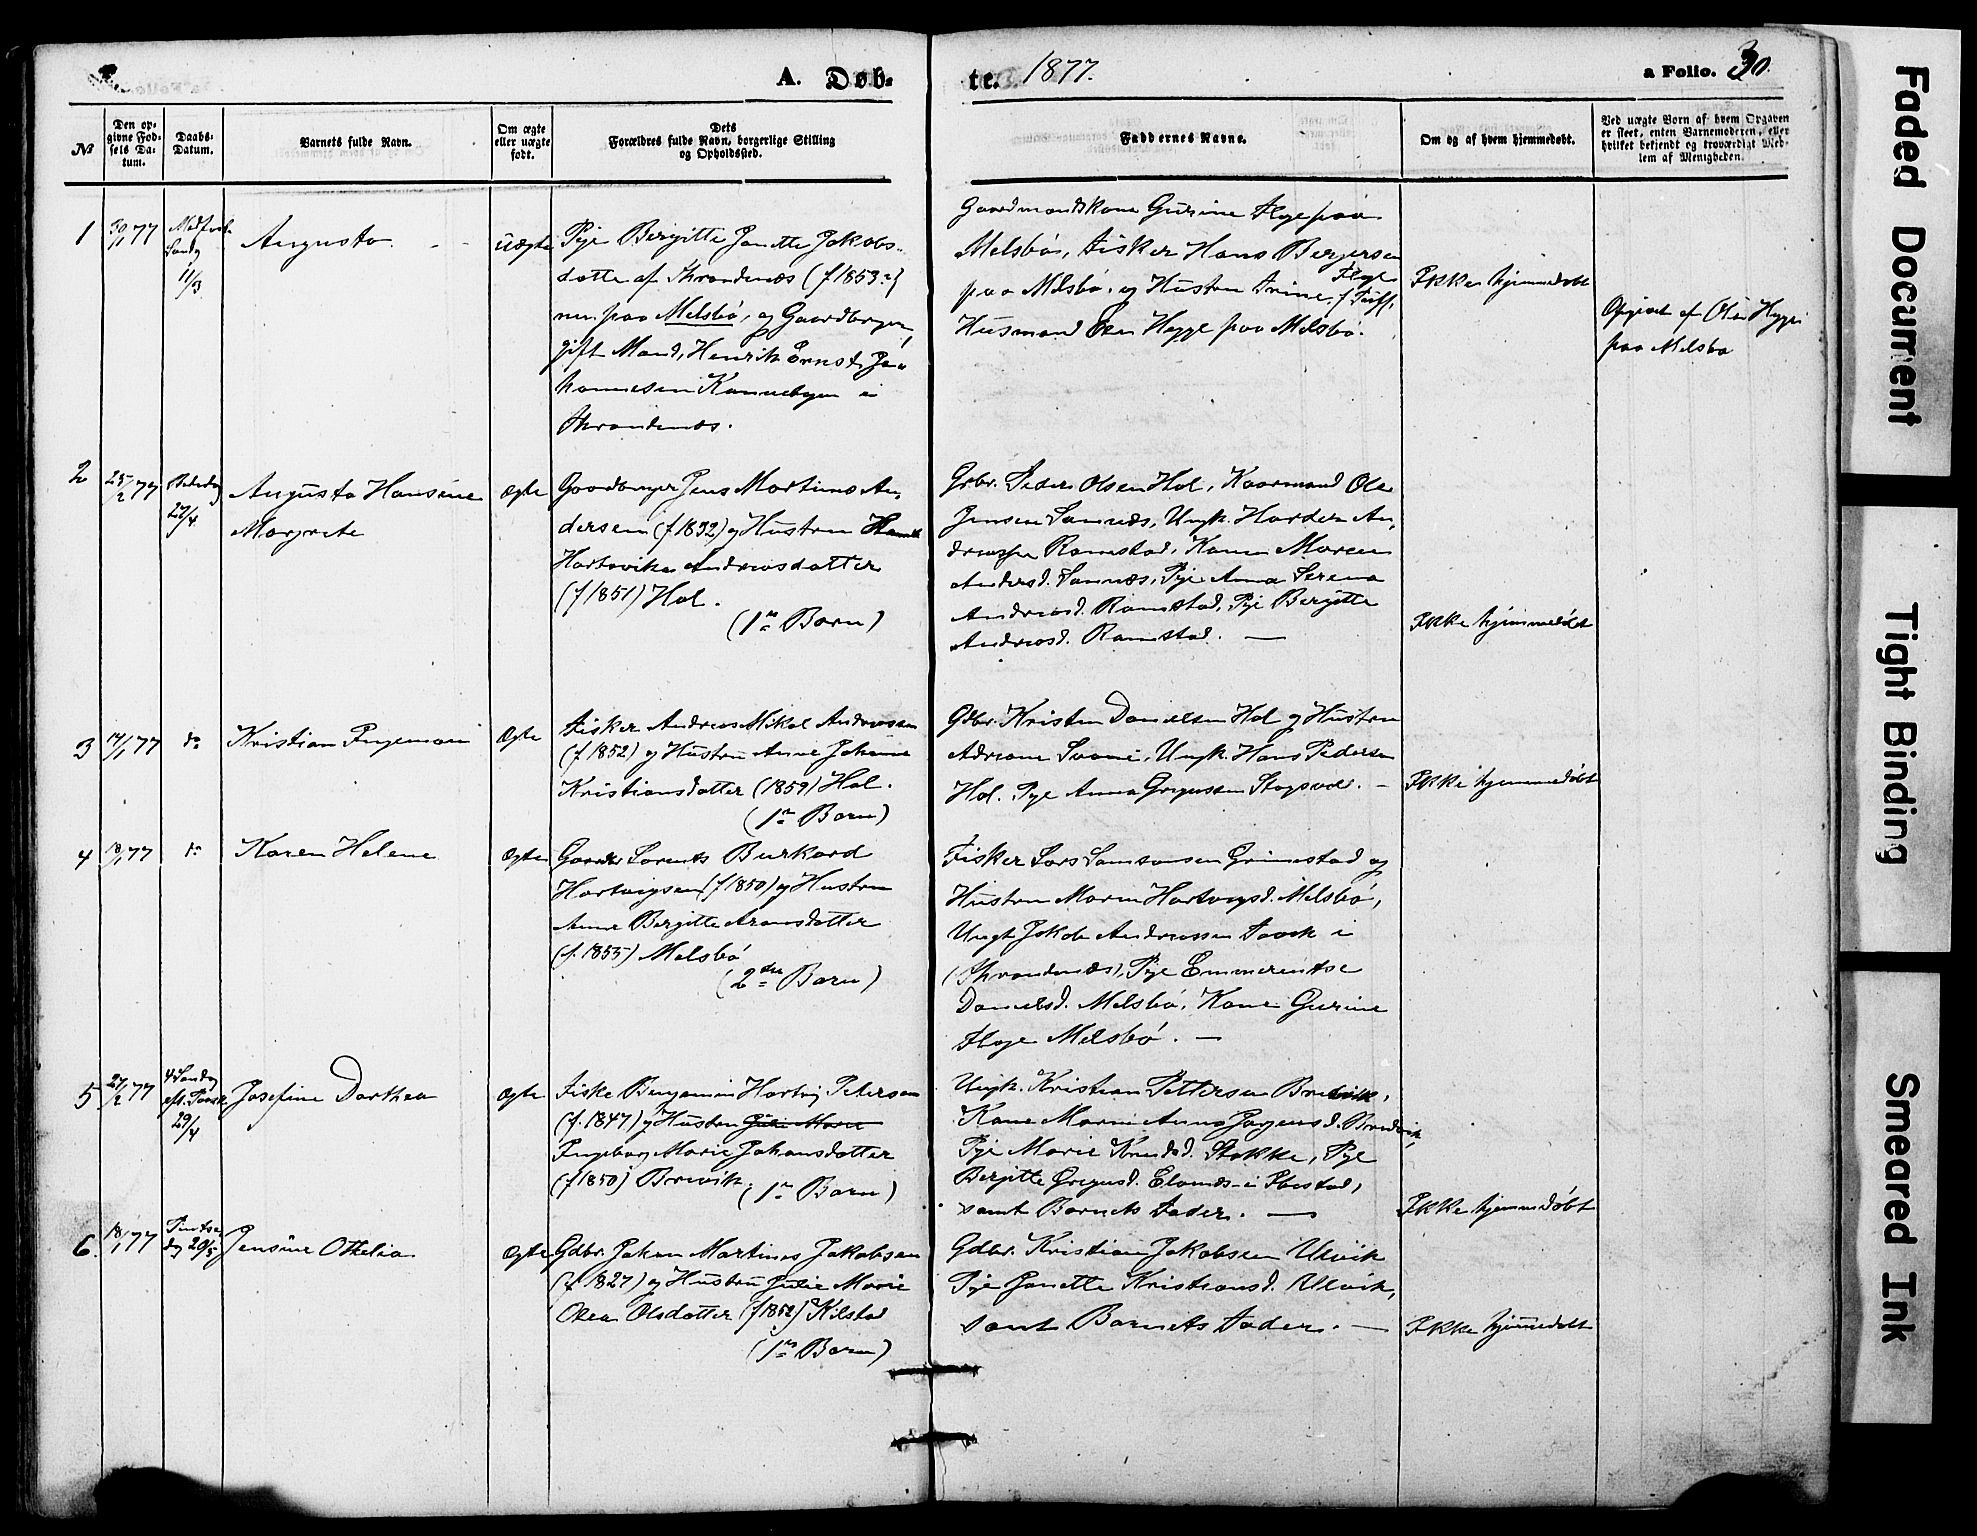 A. Døb-
te. 1877.
a Folio. 30.
№
Den op-
givne Fød-
sels Da-
tum.
Daabs-
Datum.
Barnets fulde Navn.
Om ægte
eller uægte
født.
Dets
Forældres fulde Navn, borgerlige Stilling
og Opholdssted.
Faddernes Navne.
Om og af hvem hjemmedøbt.
Ved uægte Børn af hvem Opgaven
er skeet, enten Barnemoderen, eller
hvilket bekjendt og troværdigt Med-
lem af Menigheden.
1
30/1 77
11/3
Augusta
uægte
Pige Bergitte Janette Jakobs-
datter af Throndenæs (f 1853)
paa Melsbø, og Gaardbruger,
gift Mand, Henrik Ernst Jo-
hannesen Kannebogen i
Throndenæs.
Gaardmandskone Gurine Floge paa
Melsbø, Fisker Hans Bergersen
paa Melsbø og Hustru Trine
Husmand Hegge paa Melsbø.
Ikke hjemmedøbt
Opgivet af
paa Melsbø
2
25/2 77
27/4
Augusta Hansine
Margrete
ægte
Gaardbruger Jens Martinus An-
dersen (f. 1852) og Hustru
Hartvika Andreasdatter
(f 1851) Hol.
(1ste Barn)
Grbr. Peder Olsen Hol, Kaarmand Ole
Jensen Sannæs, Ungk. An-
dreassen Ramstad, Kone Maren
Andersd. Sannæs, Pige Anna Serena
Andreasd. Ramstad, Pige Bergitte
Andreasd. Ramstad. —
Ikke hjemmedøbt
3
77
do
Kristian Ingeman
Ægte
Fisker Andreas Mikal Andreassen
(f. 1852) og Hustru Anne Johanna
Kristiansdatter (1859) Hol.
(1ste Barn)
Gdbr. Kristen Danielsen Hol og Hustru
Adriane, Ungk. Hans Pedersen
Hol. Pige Anna —
Ikke hjemmedøbt
4
18/1 77
do
Karen Helene
Ægte
Lorents Burkard
Hartvigsen (f 1850) og Hustru
Anne Bergitte Aronsdatter
(f. 1855) Melsbø
(2det Barn)
Fisker Lars Samsonsen Grimestad og
Hustru Maren Hartvigsd. Melsbø,
Ungk Jakob Andreassen i
(Throndenæs), Pige Emmerentse
Danielsd. Melsbø, Kone Gurine
Floge Melsbø. —
5
27/2 77
4 Søndag
eft. Paaske
29/4
Josefine Dorthea
ægte
Fisker Benjamin Hartvig Petersen
(f. 1847) og Hustru
Ingeborg Marie Johansdatter
(f 1850) Brevik.
(1ste Barn)
Ungk. Kristian Pettersen Bredvik,
Kone Maren Anna Jørgensd. Bredvik,
Pige Marie Knudsd. Stokke, Pige
Bergitte Gregusd. i Ibestad,
samt Barnets Fader. —
Ikke hjemmedøbt
6.
18/1 77
Pintse-
dag 20/5
Jensine Othelia
Ægte
Gdbr. Johan Martines Jakobsen
(f 1827) og Hustru Julie Marie
Olea Olsdatter (f 1852) Kilstad
(1ste Barn)
Gdbr. Kristian Jakobsen Ulvik
Pige Janette Kristiansd. Ulvik,
samt Barnets Fader. —
Ikke hjemmedøbt
Faded Document
Tight Binding
Smeared Ink